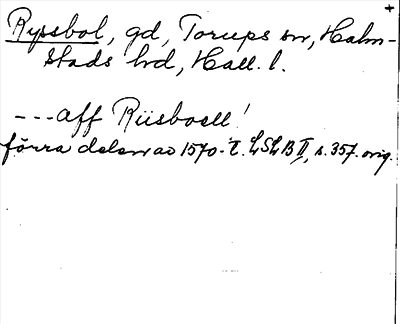 +
Rypsbol, gd, Torups sn, Halm-
stads hd, Hall. l.
---aff Riisboell!
förra delen av 1570-t. LSLB II, s. 357. orig.